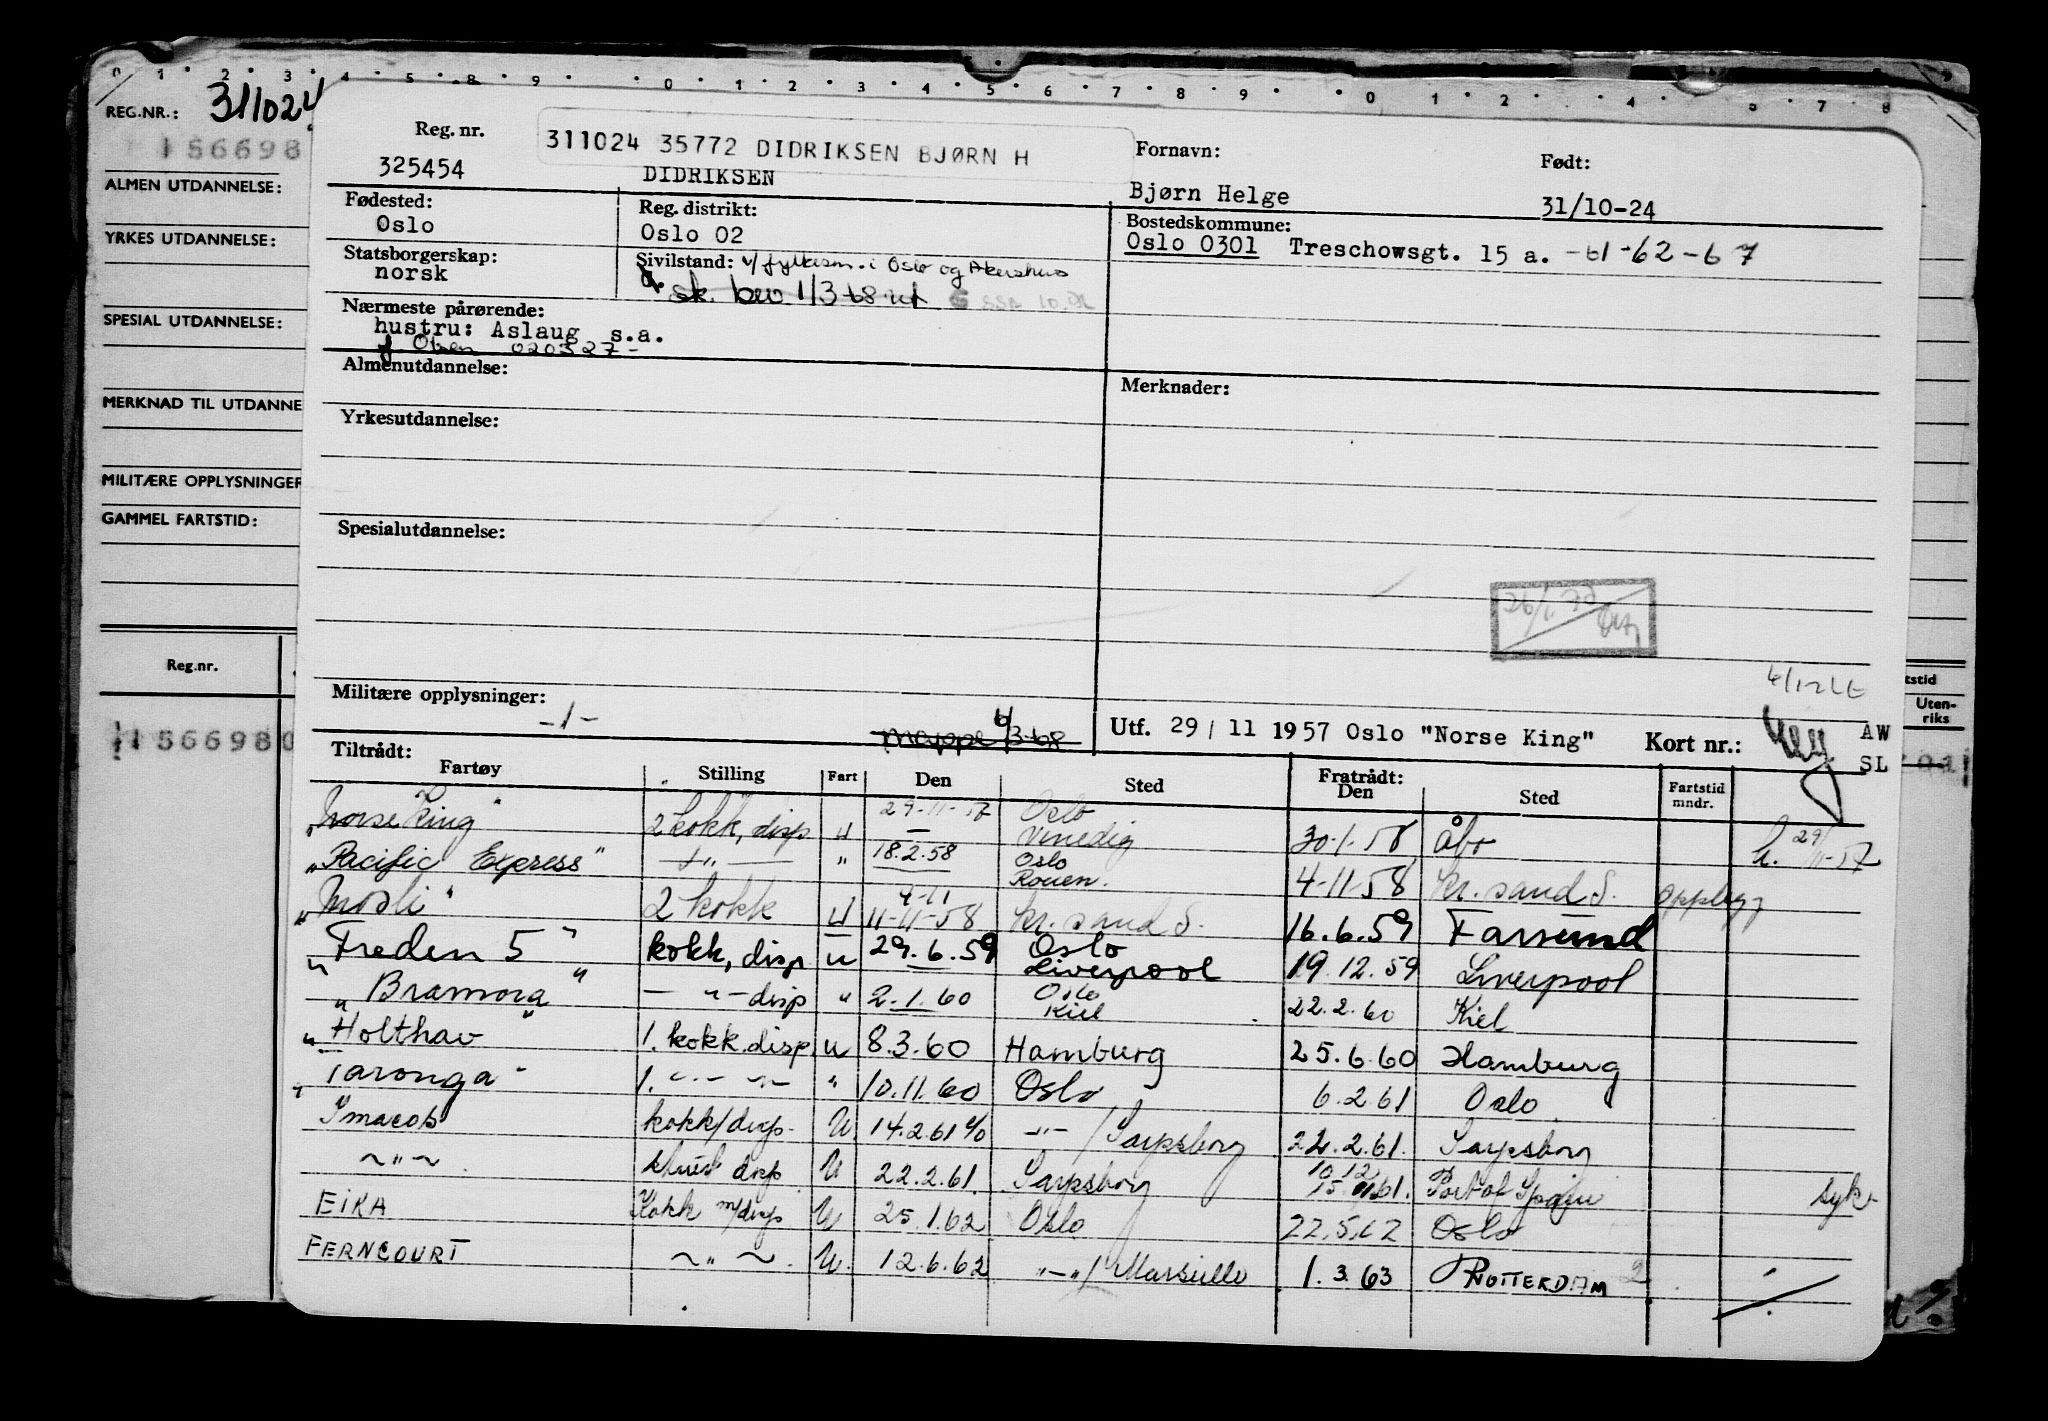 0 1 2 3 4 5 8 9 0 1 2 3 4 5 6 7 8 9 0 1 2 4 6 7 8
REG.NR.: 311024
156698
ALMEN UTDANNELSE:
YRKES UTDANNELSE:
SPESIAL UTDANNELSE:
MERKNAD TIL UTDANNE
MILITÆRE OPPLYSNINGER
GAMMEL FARTSTID:
Reg.nr.
1566980
Reg. nr. 311024 35772 DIDRIKSEN BJØRN H Fornavn: Født:
325454 DIDRIKSEN Bjørn Helge 31/10-24
Fødested: Reg. distrikt: Bostedskommune:
Oslo Oslo 02 Oslo 0301 Treschowsgt. 15 a. -61-62-67
Statsborgerskap: Sivilstand: v/ fylkesm. i Oslo og Akershus
norsk sk. bev 1/3-68 utf
Nærmeste pårørende:
hustru: Aslaug s.a.
f Olsen 020327-
Almenutdannelse: Merknader:
Yrkesutdannelse:
Spesialutdannelse:
Militære opplysninger:
-1- Mappe 4/3-68 Utf. 29/11 1957 Oslo "Norse King" Kort nr.: AW
SL
tstid
Uten-
riks
Tiltrådt: Fratrådt:
Fartøy Stilling Fart Den Sted Den Sted Fartstid mndr.
"Norse King" 2 kokk, disp u 29-11-57 Oslo Venedig 30-1-58 Åbo h. 29/11-57
"Pacific Express" -"- " 18.2.58 Oslo Rouen. 4-11-58 Kr.sand S. opplegg
"Mosli" 2 kokk u 4-11 11-11-58 Kr. sand S. 16.6.59 Farsund
"Freden 5" kokk, disp u 29.6.59 Oslo Liverpool 19.12.59 Liverpool
"Bramora" -"- disp " 2.1.60 Oslo Kiel 22.2.60 Kiel
"Holthav" 1. kokk.disp u 8.3.60 Hamburg 25.6.60 Hamburg
"Taronga" 1. -"- -"- " 10.11.60 Oslo 6.2.61 Oslo
Imacos kokk/disp. U 14.2.61 -"-/Sarpsborg 22.2.61. Sarpsborg
-"- stuert disp U 22.2.61. Sarpsborg 10.12 15.11.61. Port of Spain syk
EIKA Kokk m/disp U 25.1.62 Oslo 22.5.62 Oslo
FERNCOURT -"- U. 12.6.62 -"-/Marseille 1.3.63 ROTTERDAM